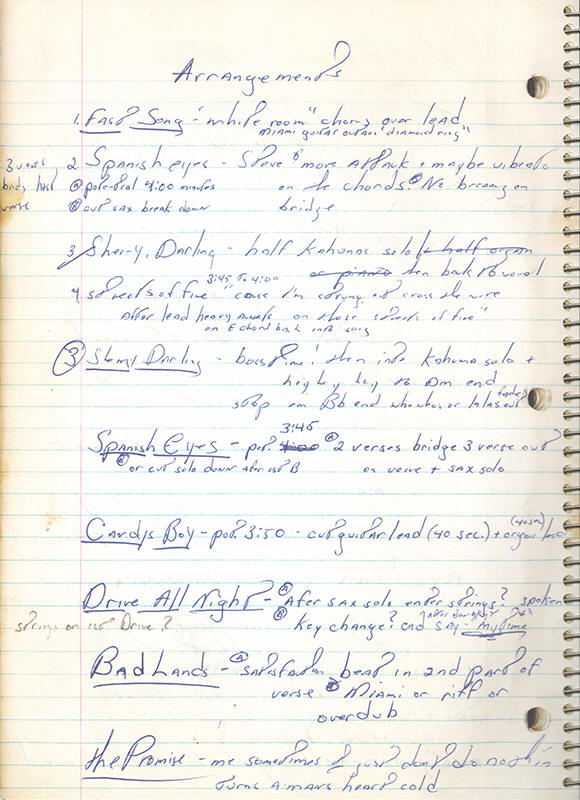 Arrangements
1. Fast Song - "white room" chorus over lead
Miami guitar "diamond ring"
3 verses
2. Spanish eyes - Steve more attack + maybe vibrato
Ⓐ potential 4:00 minutes on the chords. No breaking on
verse
Ⓑ cut sax break down bridge
3 Sherry, Darling - half Kahunas solo + half organ
or piano then back to vocal
3:45 to 4:00
4 streets of fire "cause I'm strung out cross the wire
After lead heavy on those streets of fire"
on E chord back into song
③ Sherry Darling - then into Kahuna solo +
to Dm end
stop on Bb end fades
3:45
Spanish Eyes - pot. 4:00 Ⓐ 2 verses bridge 3 verse out
Ⓐ or cut solo down after 1st B on verse + sax solo
(40 sec)
Candys Boy - pot. 3:50 - cut guitar lead (40 sec.) + organ
Drive All Night - Ⓐ After sax solo enter strings? spoken
strings on 1st Drive?
Ⓑ Key change? end SAY - My Time
Bad Lands - Ⓐ satisfaction beat in 2nd part of
verse Ⓑ Miami or riff or
overdub
the Promise - me sometimes I just don't do nothin
turns a mans heart cold